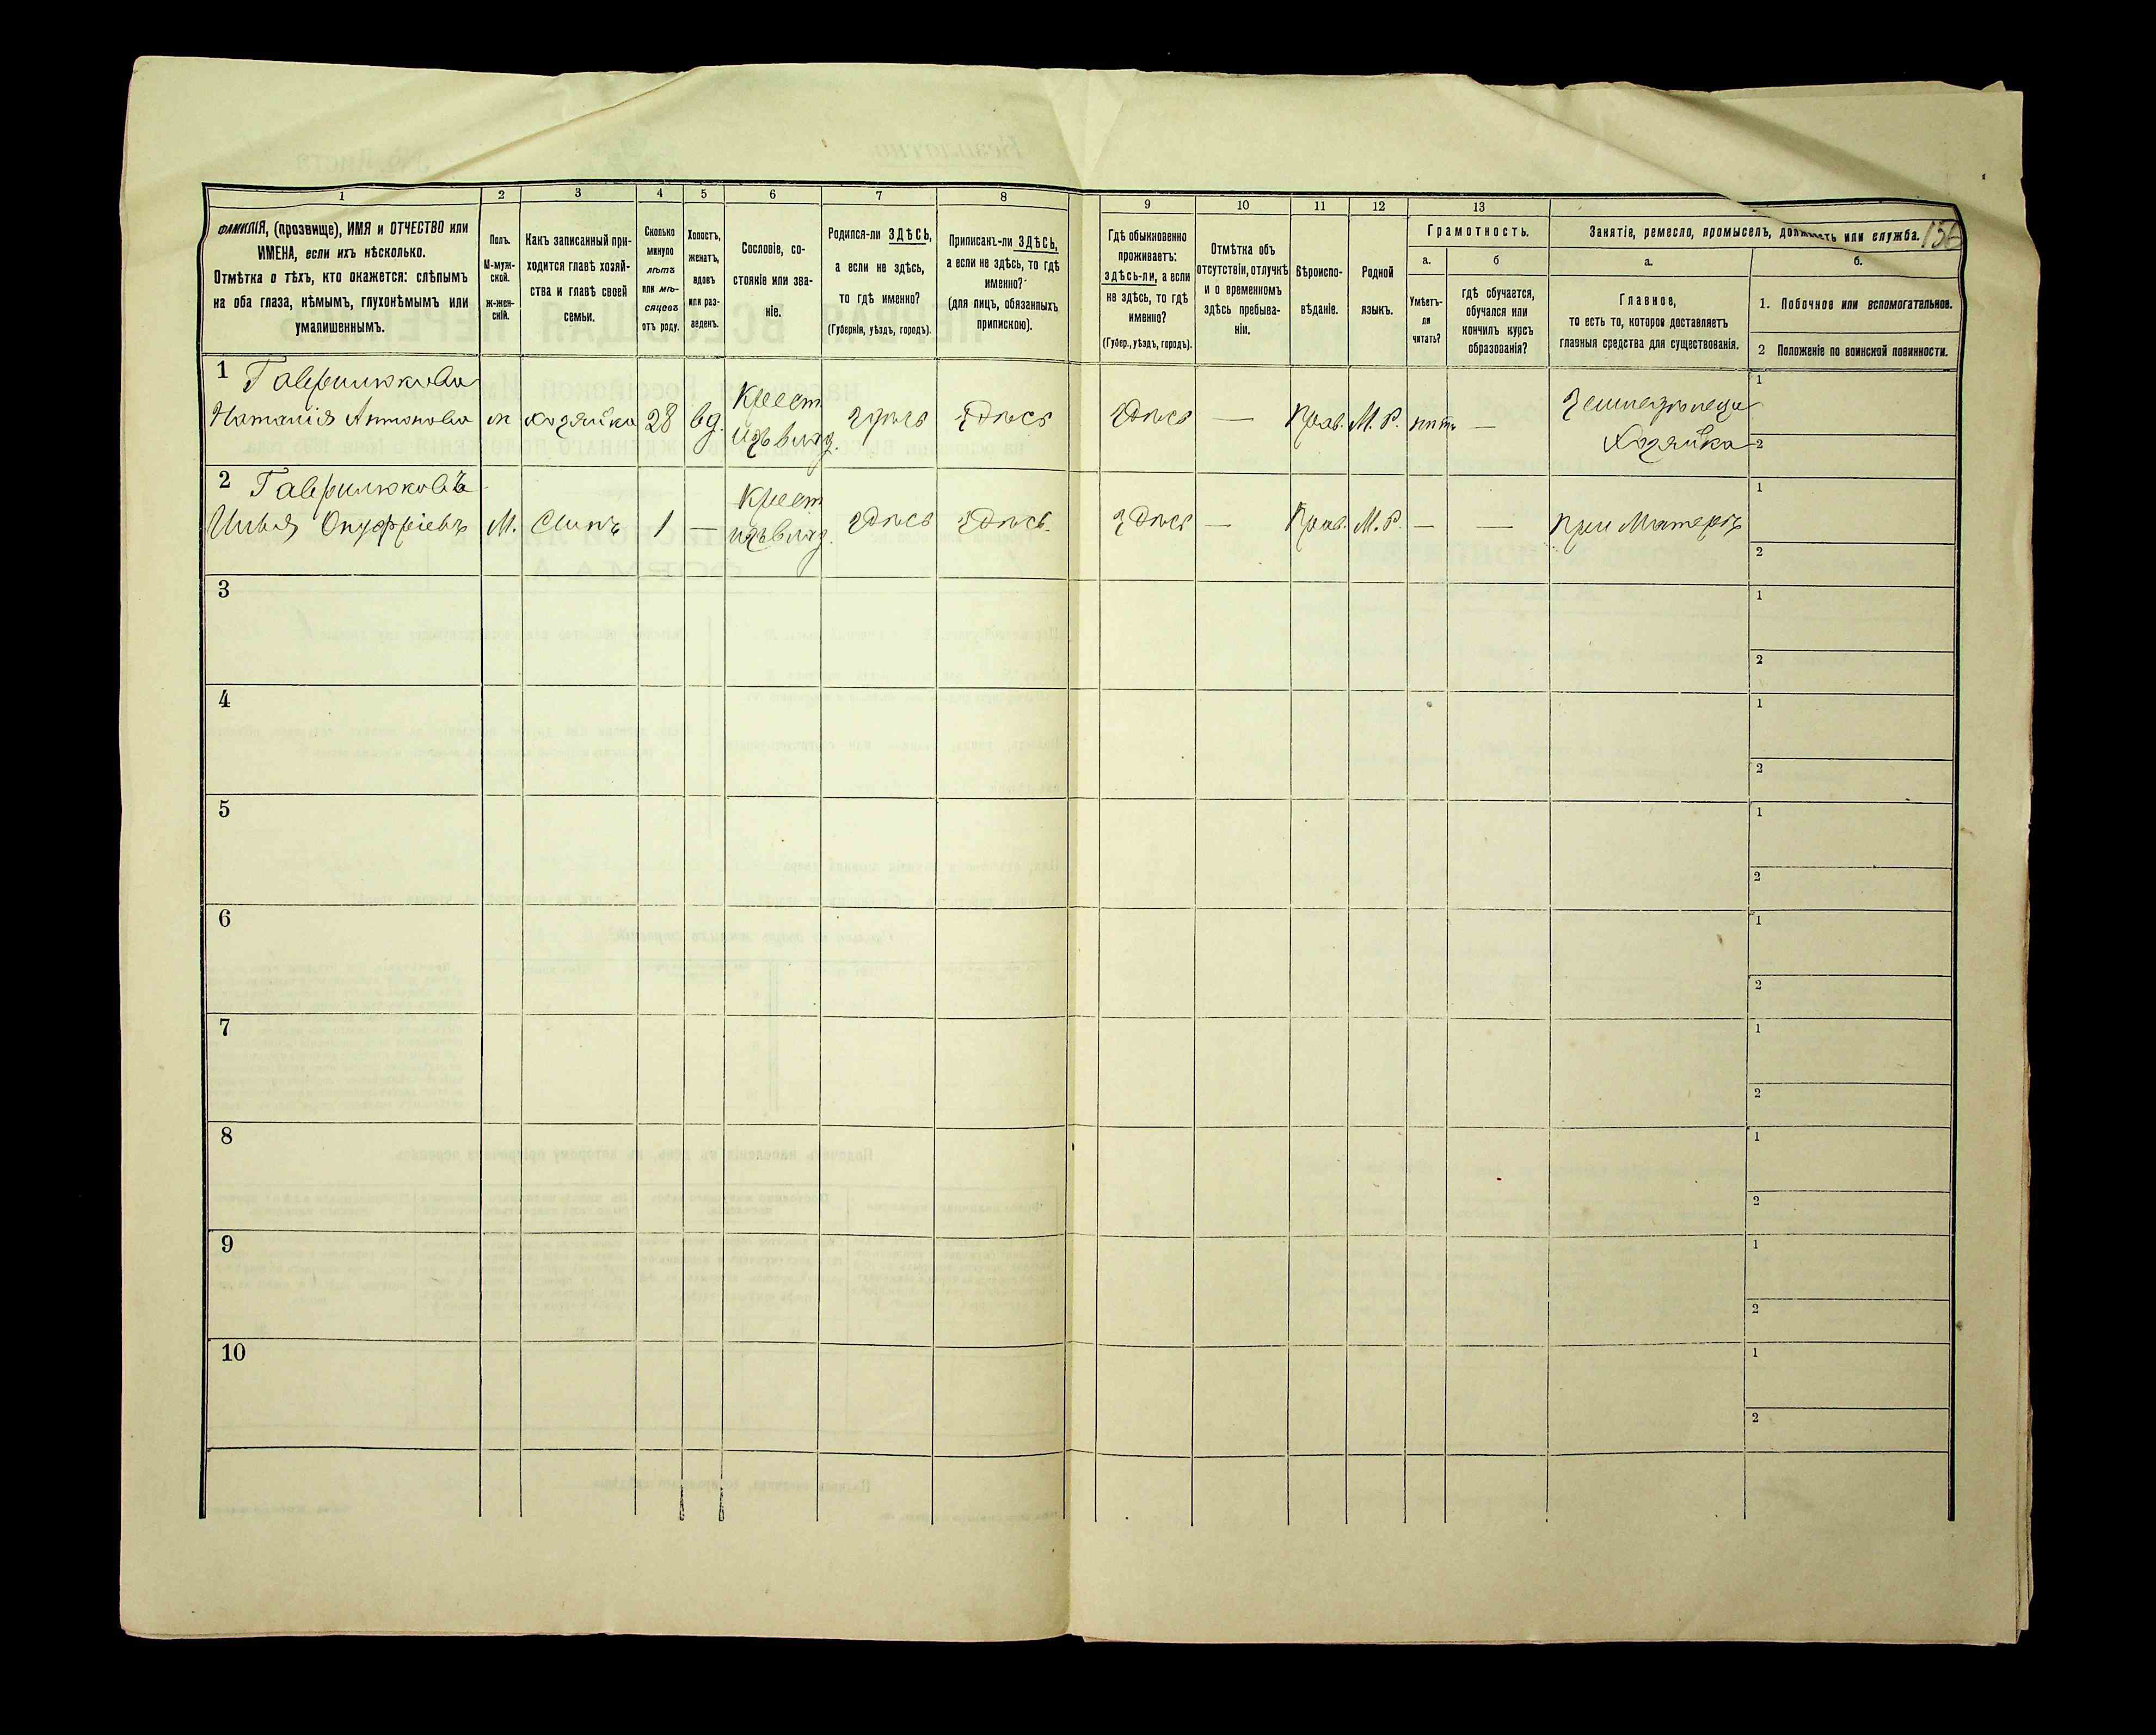 1 2 3 4 5 6 7 8 9 10 11 12 13
ФАМИЛІЯ, (прозвище), ИМЯ и ОТЧЕСТВО или
ИМЕНА, если ихъ нѣсколько.
Отмѣтка о тѣхъ, кто окажется: слѣпымъ
на оба глаза, нѣмымъ, глухонѣмымъ или
умалишеннымъ.
Полъ.
М-муж-
ской.
ж-жен-
скій.
Какъ записанный при-
ходится главѣ хозяй-
ства и главѣ своей
семьи.
Сколько
минуло
лѣтъ
или мѣ-
сяцевъ
отъ роду.
Холостъ,
женатъ,
вдовъ
или раз-
веденъ.
Сословіе, со-
стояніе или зва-
ніе.
Родился-ли ЗДѢСЬ,
а если не здѣсь,
то гдѣ именно?
(Губернія, уѣздъ, городъ).
Приписанъ-ли ЗДѢСЬ,
а если не здѣсь, то гдѣ
именно?
(для лицъ, обязанныхъ
припискою).
Гдѣ обыкновенно
проживаетъ:
здѣсь-ли, а если
не здѣсь, то гдѣ
именно?
(Губер., уѣздъ, городъ).
Отмѣтка объ
отсутствіи, отлучкѣ
и о временномъ
здѣсь пребыва-
ніи.
Вѣроиспо-
вѣданіе.
Родной
языкъ.
Грамотность.
а.
Умѣетъ-
ли
читать?
б
гдѣ обучается,
обучался или
кончилъ курсъ
образованія?
Занятіе, ремесло, промыселъ, должность или служба.
а.
Главное,
то есть то, которое доставляетъ
главныя средства для существованія.
б.
1. Побочное или вспомогательное.
2 Положеніе по воинской повинности.
156
1 Гаврилюкова
Наталія Антонова ж хозяйка 28 вд. Крест. изъ влад. здѣсь здѣсь здѣсь — Прав. М. Р. нѣтъ — Земледѣлецъ 1
Хозяйка 2
2 Гаврилюковъ
Илья Онуфріевъ М. Сынъ 1 — Крест. изъ влад. здѣсь здѣсь. здѣсь — Прав. М. Р. — — При Матерѣ 1
2
3 1
2
4 1
2
5 1
2
6 1
2
7 1
2
8 1
2
9 1
2
10 1
2